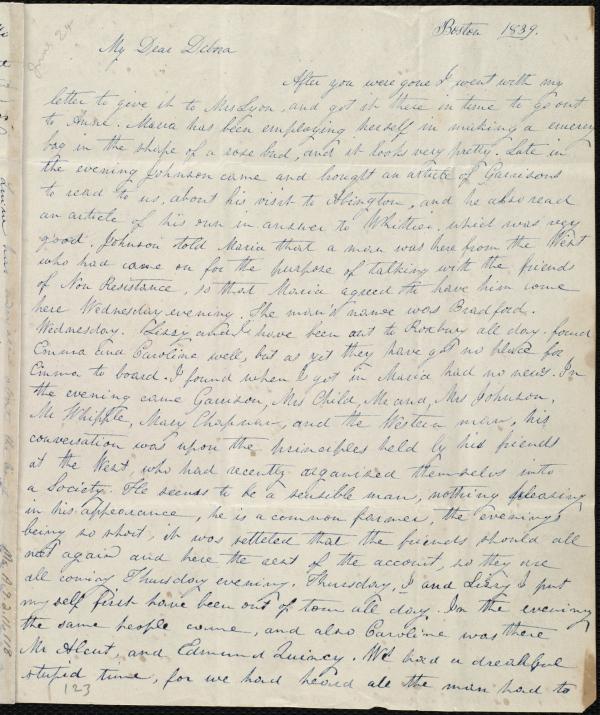 Boston 1839.
June 24
My Dear Debora
After you were gone I went with my
letter to give it to Mrs Lyon, and got it there in time to go out
to Anne. Maria has been employing herself in making a emery
bag in the shape of a rose bud, and it looks very pretty. Late in
the evening Johnson came and brought an article of Garrisons
to read to us, about his visit to Abington, and he also read
an article of his own in answer to Whittier. which was very
good. Johnson told Maria that a man was here from the West
who had come on for the purpose of talking with the friends
of Non Resistance, so that Maria agreed to have him come
here Wednesday evening. The man's name was Bradford.
Wednesday. Lizzy and I have been out to Roxbury all day. found
Emma and Caroline well, but as yet they have got no place for
Emma to board. I found when I got in Maria had no news. In
the evening came Garrison, Mrs Child, Mr and, Mrs Johnson,
Mr Whipple, Mary Chapman, and the Western man, his
conversation was upon the principles held by his friends
at the West, who had recently organised themselves into
a Society. He seems to be a sensible man, nothing pleasing
in his appearance, he is a common farmer, the evenings
being so short, it was settled that the friends should all
meet again and here the rest of the account, so they are
all coming Thursday evening. Thursday, I and Lizzy I put
my self first have been out of town all day. In the evening
the same people came, and also Caroline was there
Mr Alcut, and Edmund Quincy. We had a dreadful
stupid time, for we had heard all the man had to
123